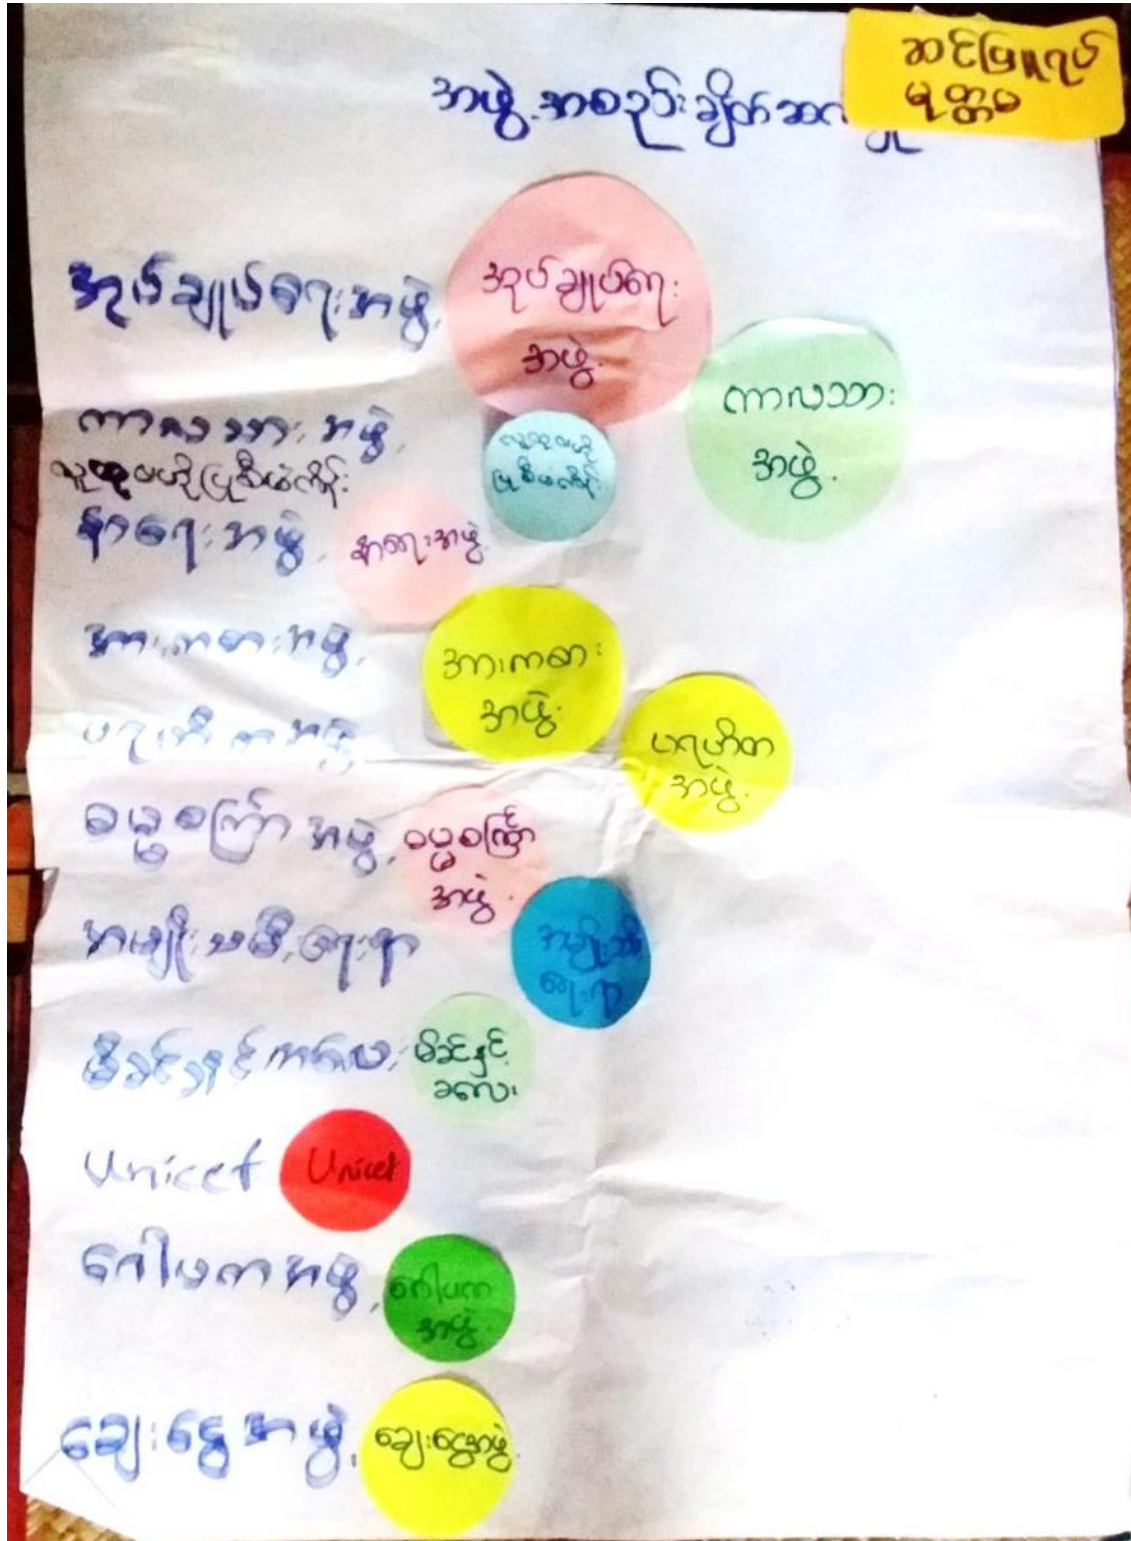 ဆင်ဖြူရပ်
မုတ္တမ
အဖွဲ့အစည်းချိတ်ဆက်
အုပ်ချုပ်ရေးအဖွဲ့
အုပ်ချုပ်ရေး
အဖွဲ့
ကာလသားအဖွဲ့
ကာလသား
အဖွဲ့
လူထုဗဟိုပြုစီမံကိန်း
လူထုဗဟို
ပြုစီမံကိန်း
နာရေးအဖွဲ့
နာရေးအဖွဲ့
အားကစားအဖွဲ့
အားကစား
အဖွဲ့
ပရဟိတအဖွဲ့
ပရဟိတ
အဖွဲ့
ဓမ္မစကြာအဖွဲ့
ဓမ္မစကြာ
အဖွဲ့
အမျိုးသမီးရေးရာ
အမျိုးသမီး
ရေးရာ
မိခင်နှင့်ကလေး
မိခင်နှင့်
ခလေး
Unicef
Unicef
ဂေါပကအဖွဲ့
ဂေါပက
အဖွဲ့
ချေးငွေအဖွဲ့
ချေးငွေအဖွဲ့